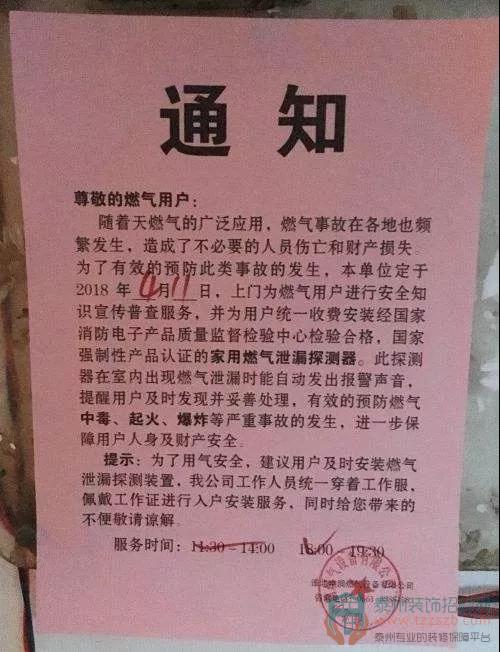 通知
尊敬的燃气用户：
随着天燃气的广泛应用，燃气事故在各地也频
繁发生，造成了不必要的人员伤亡和财产损失。
为了有效的预防此类事故的发生，本单位定于
2018 年 4 月 11 日，上门为燃气用户进行安全知
识宣传普查服务，并为用户统一收费安装经国家
消防电子产品质量监督检验中心检验合格，国家
强制性产品认证的家用燃气泄漏探测器。此探测
器在室内出现燃气泄漏时能自动发出报警声音，
提醒用户及时发现并妥善处理，有效的预防燃气
中毒、起火、爆炸等严重事故的发生，进一步保
障用户人身及财产安全。
提示：为了用气安全，建议用户及时安装燃气
泄漏探测装置，我公司工作人员统一穿着工作服，
佩戴工作证进行入户安装服务，同时给您带来的
不便敬请谅解。
服务时间：11:30－14:00 18:00－19:30
燃气设备有限公司
泰州装饰招标网
www.tzzszb.com
泰州专业的装修保障平台